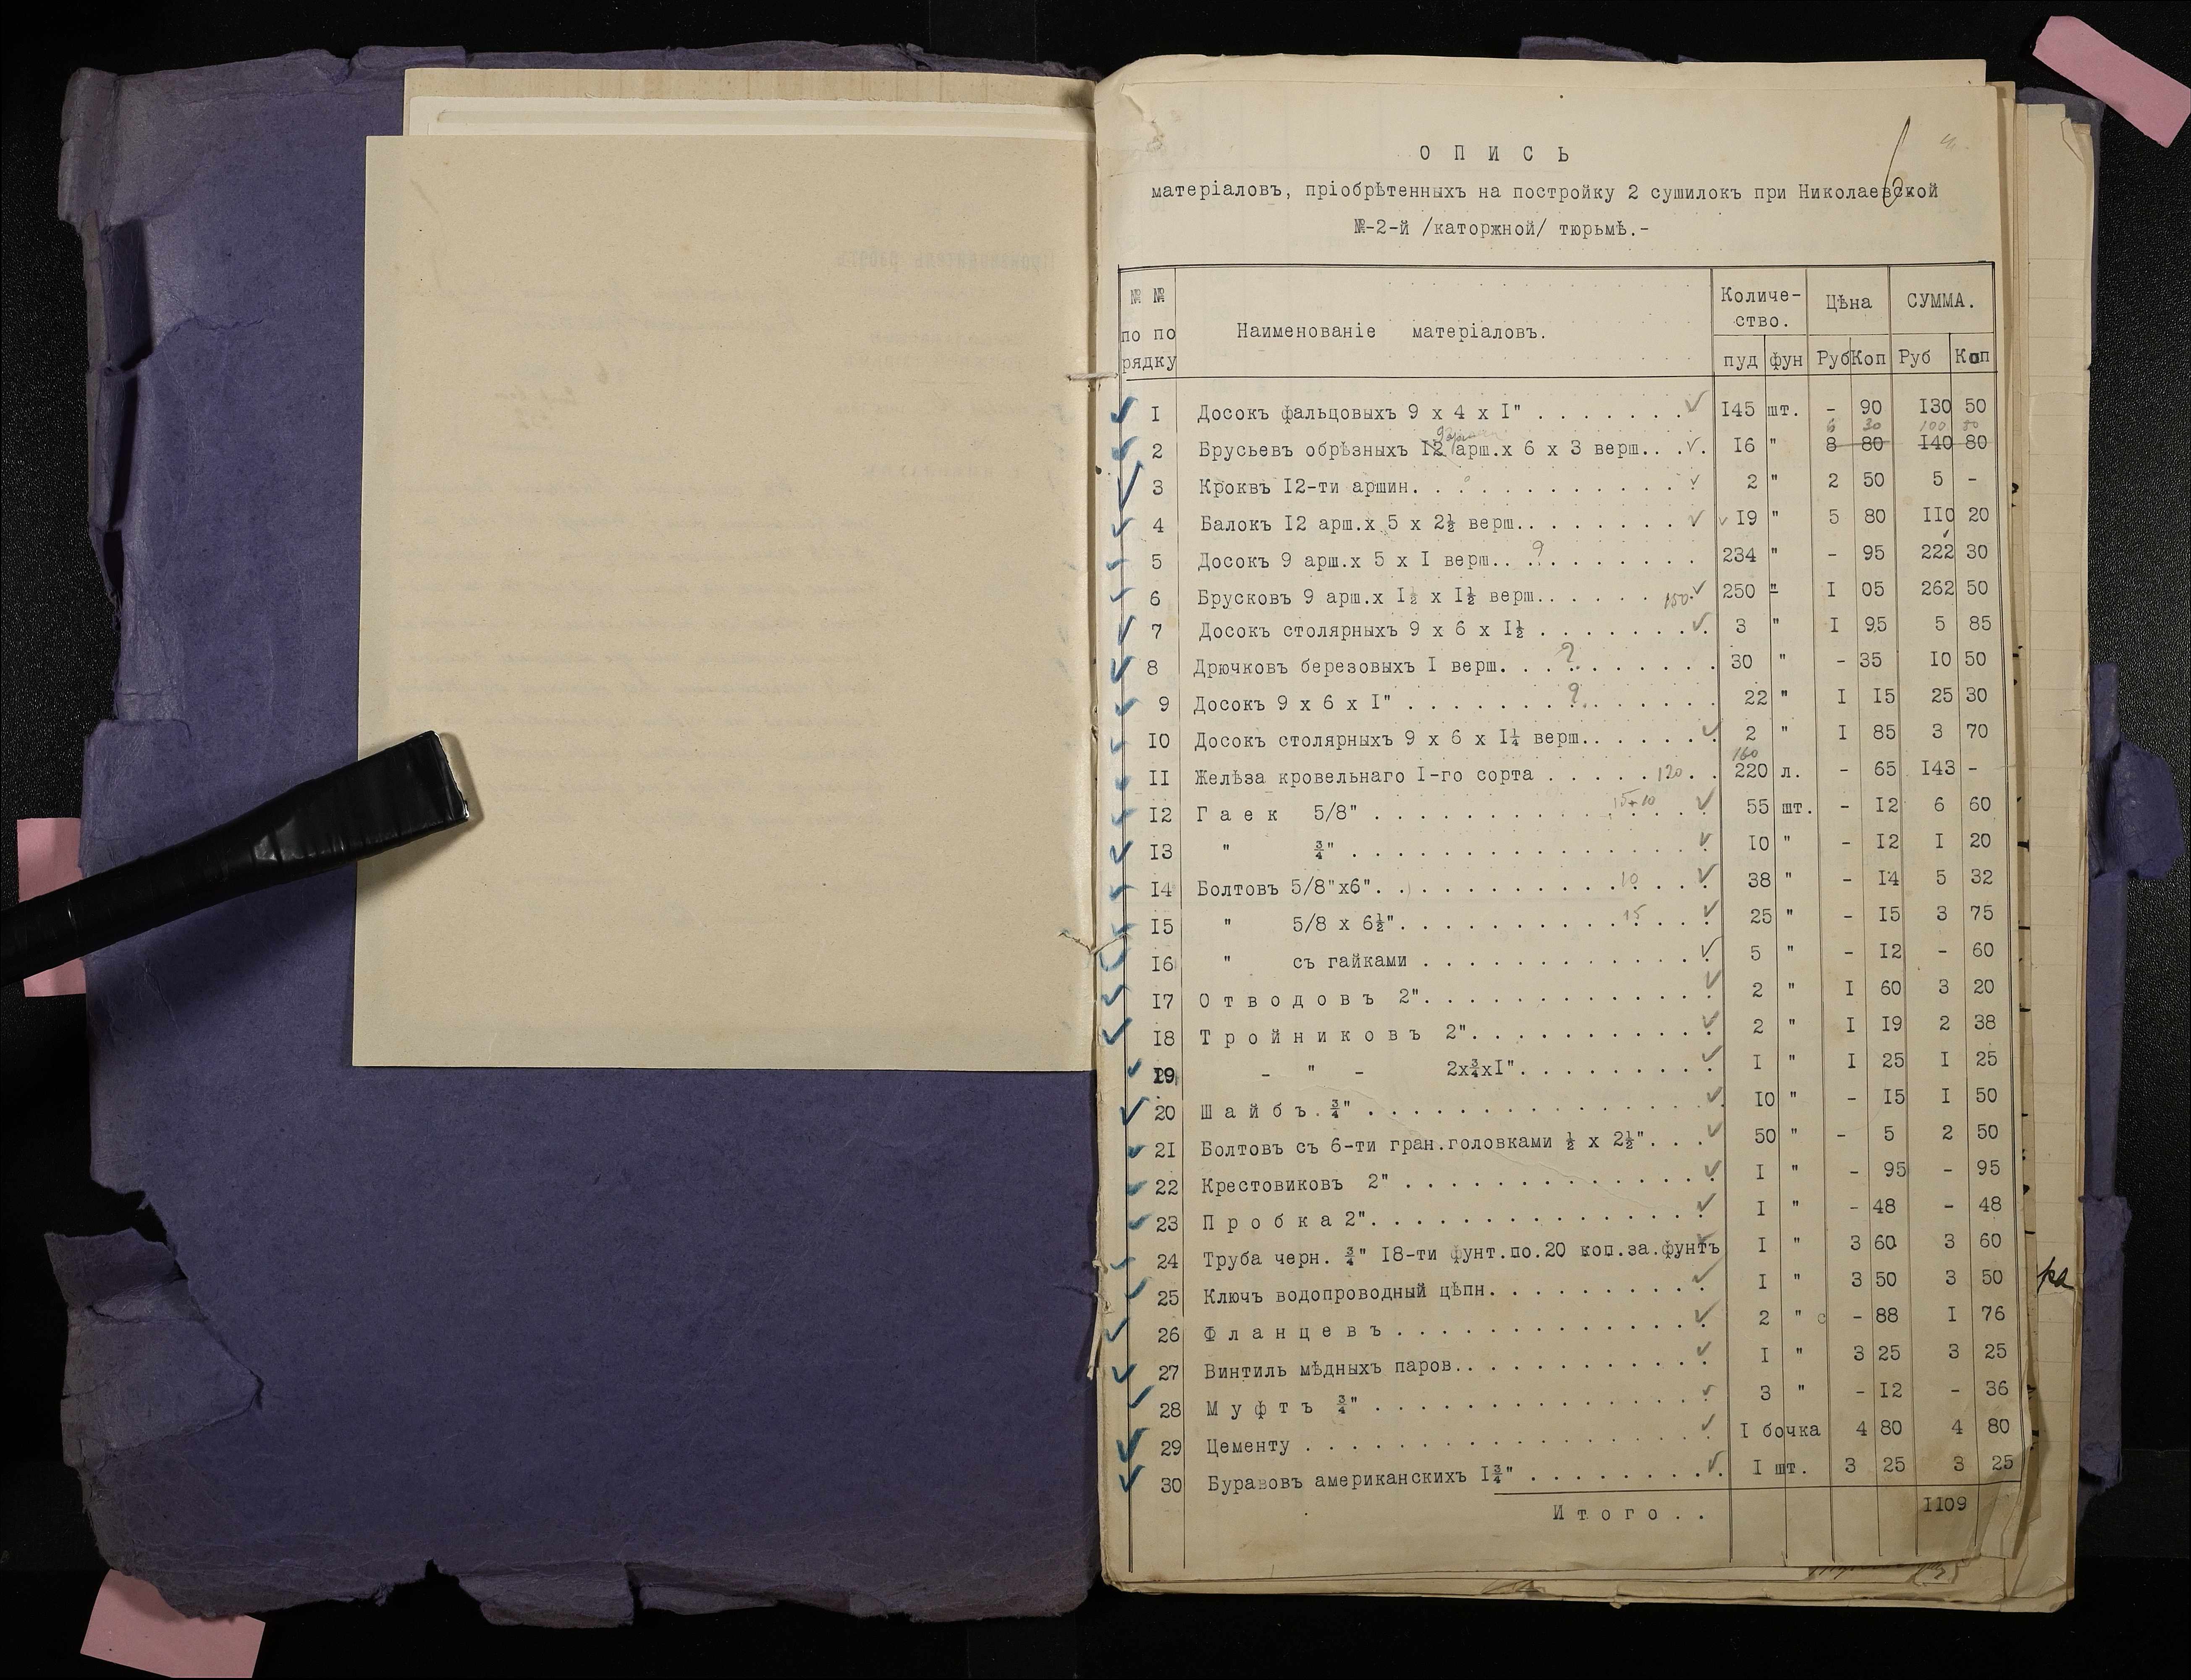 6
О П И С Ь
матеріаловъ, пріобрѣтенныхъ на постройку 2 сушилокъ при Николаевской
№-2-й /каторжной/ тюрьмѣ.-
№ № по по рядку Наименованіе матеріаловъ. Количе- ство. Цѣна СУММА.
пуд фун Руб Коп Руб Коп
I Досокъ фальцовыхъ 9 х 4 х I" . . . . . . . 145 шт. - 90 130 50
9 арш 6 30 100 80
2 Брусьевъ обрѣзныхъ I2 арш.х 6 х 3 верш.. . . 16 " 8 80 140 80
3 Кроквъ I2-ти аршин. . . . . . . . . . . . . 2 " 2 50 5 -
4 Балокъ I2 арш.х 5 х 2½ верш.. . . . . . . . I9 " 5 80 IIO 20
5 Досокъ 9 арш.х 5 х I верш.. . ? . . . . . . . 234 " - 95 222 30
6 Брусковъ 9 арш.х I½ х I½ верш.. . . . . 150 250 " I 05 262 50
7 Досокъ столярныхъ 9 х 6 х I½ . . . . . . . . 3 " I 95 5 85
8 Дрючковъ березовыхъ I верш. . . ? . . . . . . . 30 " - 35 IO 50
9 Досокъ 9 х 6 х I" . . . . . . . ? . . . . . . 22 " I I5 25 30
IO Досокъ столярныхъ 9 х 6 х I¼ верш.. . . . . . 2 " I 85 3 70
160
II Желѣза кровельнаго I-го сорта . . . . . 120 . . 220 л. - 65 I43 -
I2 Г а е к 5/8" . . . . . . . . . . 15+10 . . 55 шт. - I2 6 60
I3 " ¾" . . . . . . . . . . . . . . . . IO " - I2 I 20
I4 Болтовъ 5/8"х6". . . . . . . . . . . 10 . . . 38 " - I4 5 32
I5 " 5/8 х 6½". . . . . . . . . . 15 . . . 25 " - I5 3 75
I6 " съ гайками . . . . . . . . . . . . . 5 " - I2 - 60
I7 О т в о д о в ъ 2". . . . . . . . . . . . . 2 " I 60 3 20
I8 Т р о й н и к о в ъ 2". . . . . . . . . . . 2 " I I9 2 38
I9 - " - 2х¾хI". . . . . . . . . I " I 25 I 25
20 Ш а й б ъ ¾" . . . . . . . . . . . . . . . IO " - I5 I 50
2I Болтовъ съ 6-ти гран.головками ½ х 2½". . . . 50 " - 5 2 50
22 Крестовиковъ 2" . . . . . . . . . . . . . . I " - 95 - 95
23 П р о б к а 2". . . . . . . . . . . . . . . I " - 48 - 48
24 Труба черн. ¾" I8-ти фунт.по.20 коп.за.фунтъ I " 3 60 3 60
25 Ключъ водопроводный цѣпн. . . . . . . . . . I " 3 50 3 50
26 Ф л а н ц е в ъ . . . . . . . . . . . . . . 2 " - 88 I 76
27 Винтиль мѣдныхъ паров.. . . . . . . . . . . I " 3 25 3 25
28 М у ф т ъ ¾" . . . . . . . . . . . . . . . 3 " - I2 - 36
29 Цементу . . . . . . . . . . . . . . . . . . I бочка 4 80 4 80
30 Буравовъ американскихъ I¾" . . . . . . . . . I шт. 3 25 3 25
И т о г о . . II09
ра